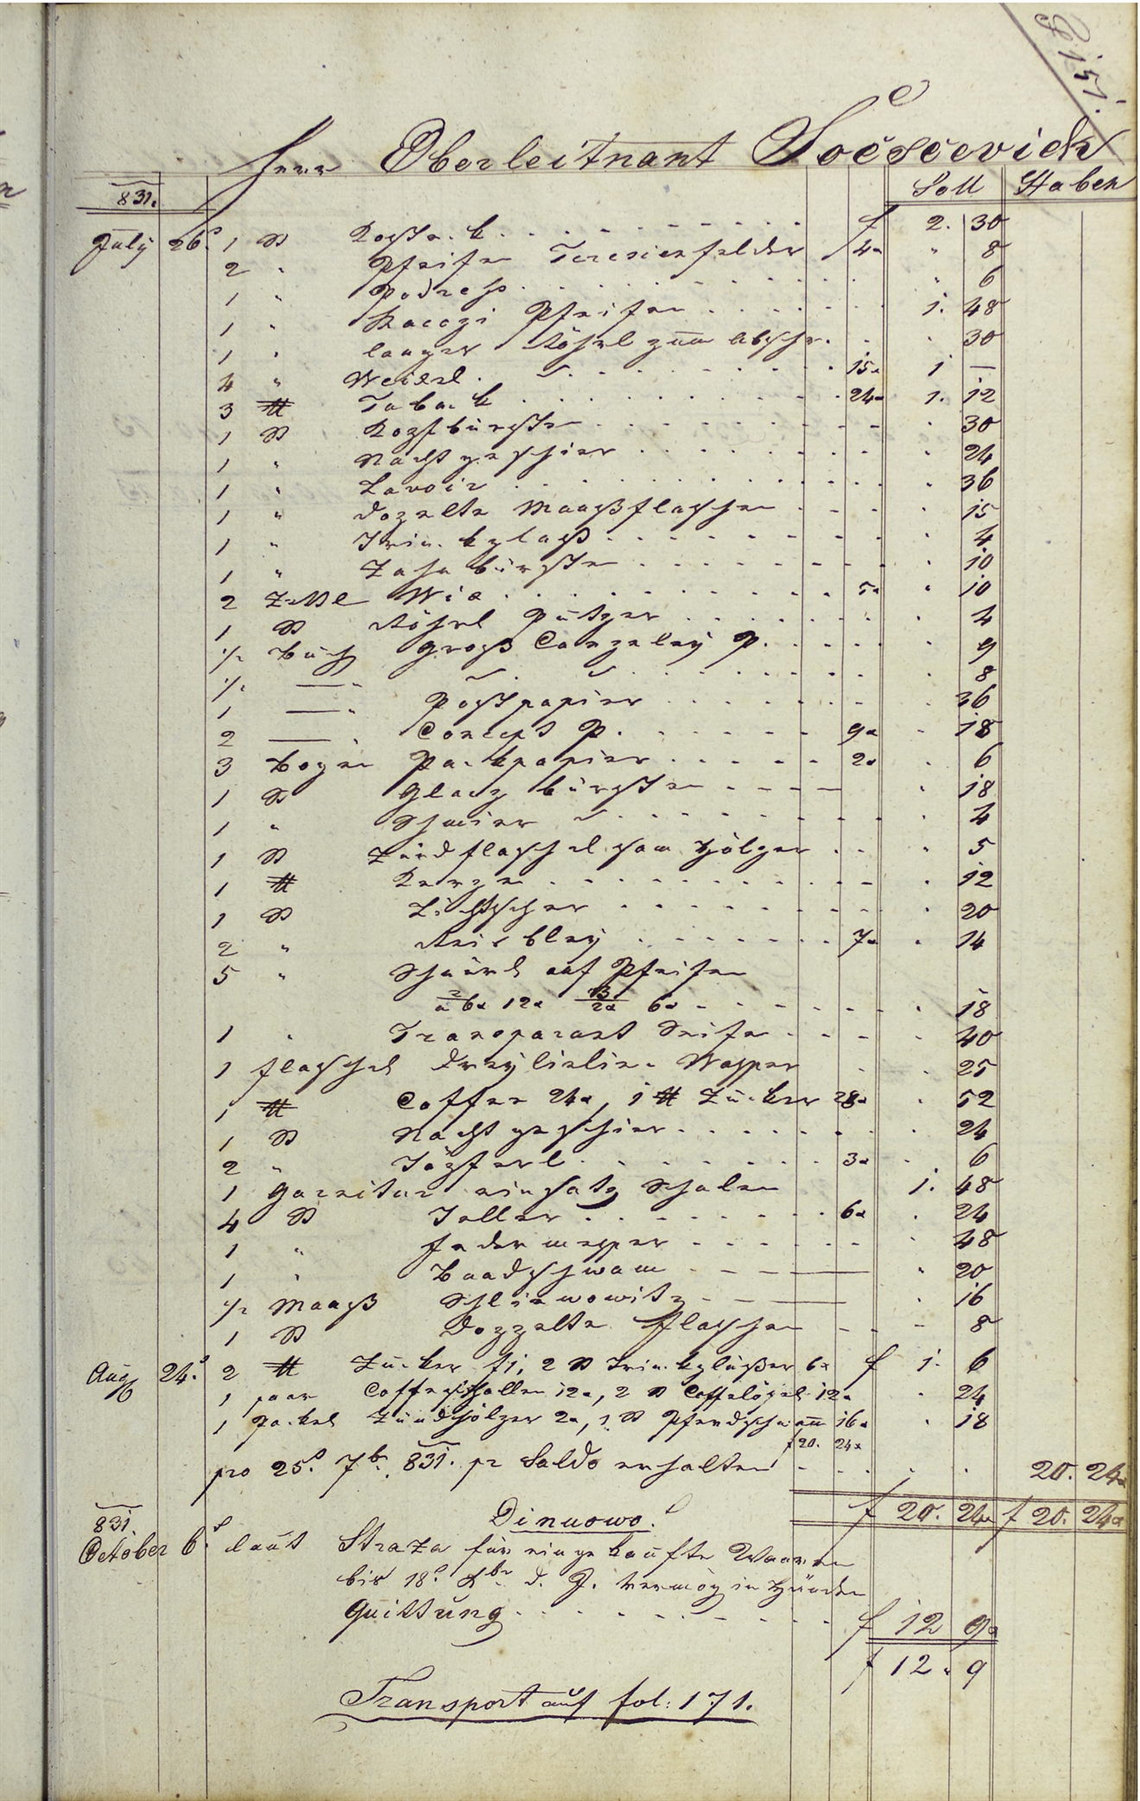 151.
Herr Oberleitnant Sočsčevich
831. Soll Haben
July 26. 1 St Kopfe.k. f 2. 30
2 " Pfeifen Teresienfelder 4x " 8
1 " Podrehs " 6
1 " Racozi Pfeifen 1. 48
1 " langes Röhrl zum 30
4 " Weixel 15x 1 —
3 ℔ Taback 24x 1. 12
1 St Kopfbürste 30
1 " Nachtgeschier 24
1 " Lavoir 36
1 " dopelte Maaßflaschen 15
1 " Trinkglaß 4
1 " Zahnbürste 10
2 Wix 5x 10
1 St Röhrl Putzer 4
½ Buch groß Canzeley P. 9
½ — " 8
1 — " Postpapier 36
2 — " Concept P. 9x 18
3 Bogen Packpapier 2x 6
1 St Glanz bürsten 18
1 " Schmier 4
1 St Zündflaschel sam Hölzer 5
1 ℔ Kerzen 12
1 St Lichtscher 20
2 " Reisbley 7x 14
5 " Schnürl auf Pfeifen
2/a 6x 12x 3/2x 6x 18
1 " Transparant Seife 40
1 flaschel Dreylielien Wasser 25
1 ℔ Coffee 24x, 1 ℔ Zucker 28x 52
1 St Nachtgeschier 24
2 " Töpferl 3x 6
1 Garnitur einsatz Schalen 1. 48
4 St Teller 6x 24
1 " Federmesser 48
1 " Baadschwam 20
½ Maaß Schliwowitz 16
1 St Doppelte Flaschen 8
Aug 24. 2 ℔ Zucker f 1, 2 St Trinkgläßer 6x f 1. 6
1 paar Coffeeschallen 12x, 2 St Coffelöfel 12x 24
1 Packel Zündhölzer 2x, 1 St 16x 18
f 20. 24x
pro 25. 7br. 831. pr Saldo erhalten 20. 24x
f 20. 24x f 20. 24x
831. Dinuowo.
October 6. laut Straza für eingekaufte Waaren
bis 18. d. J. vermög in Händen
Quittung f 12 9x
f 12. 9
Transport auf fol: 171.